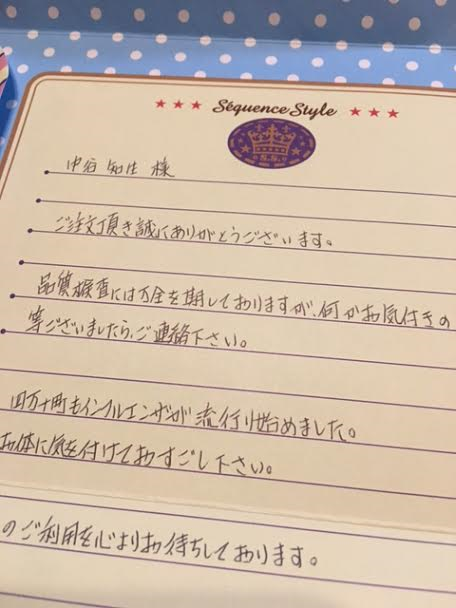 ★★★ Séquence Style ★★★
S.S.
中谷 知生 様
ご注文頂き誠にありがとうございます。
品質検査には万全を期しておりますが、何かお気付きの
等ございましたら、ご連絡下さい。
四万十町もインフルエンザが流行り始めました。
お体に気を付けておすごし下さい。
のご利用を心よりお待ちしております。